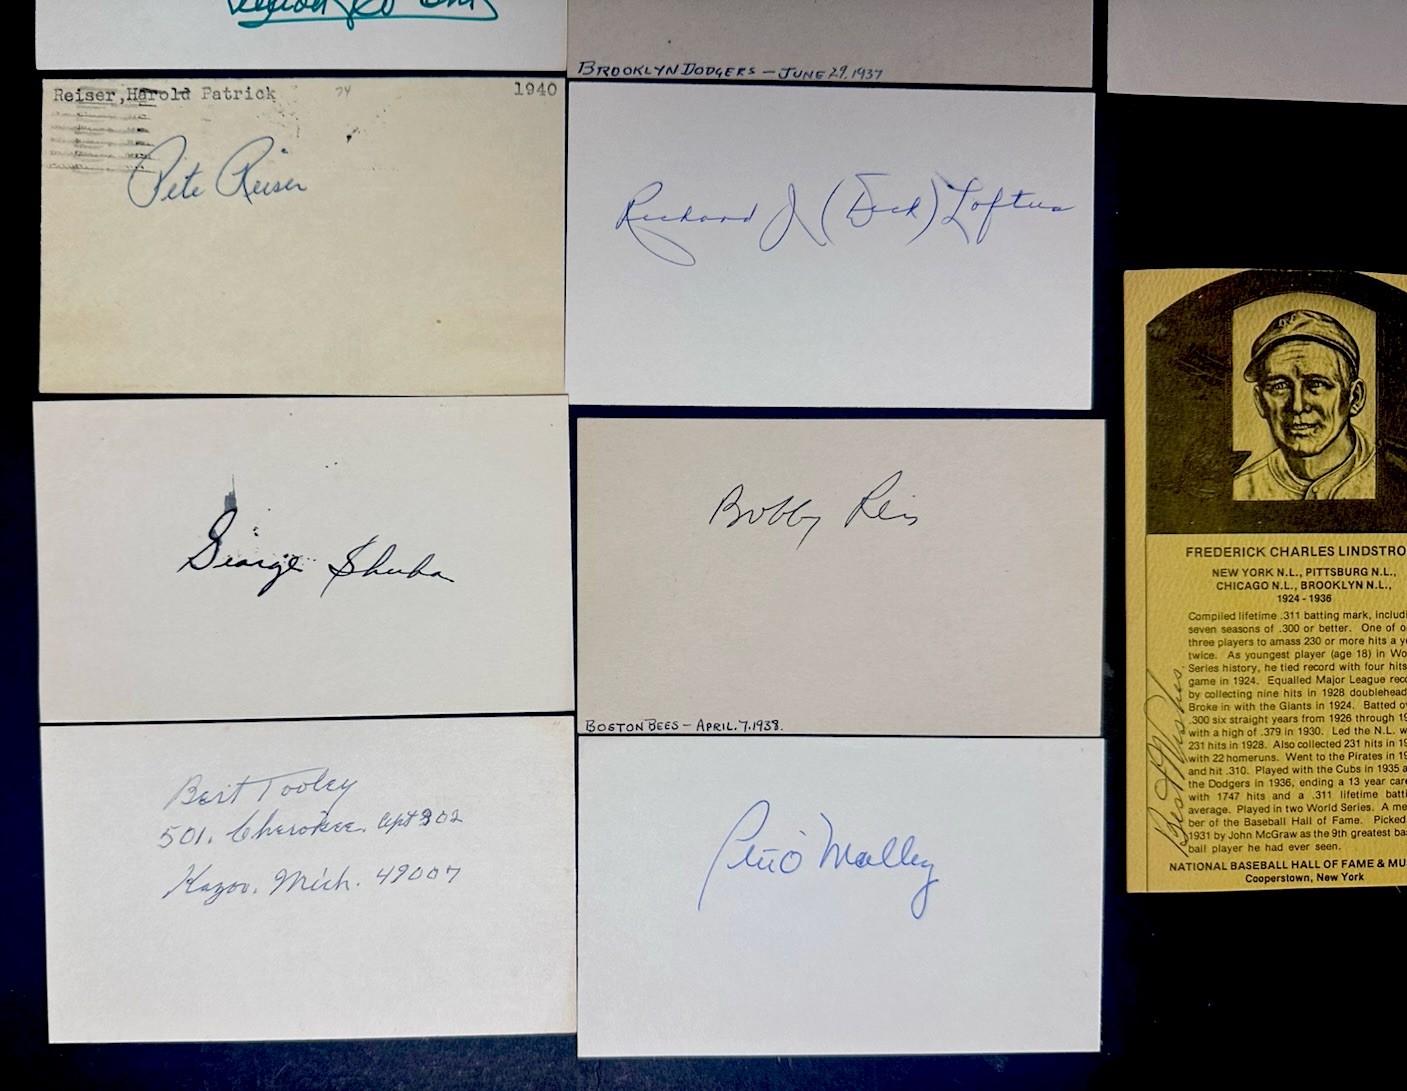 BROOKLYN DODGERS - JUNE 29, 1937
Reiser, Harold Patrick 74 1940
Pete Reiser
Richard J (Dick) Loftus
George Shuba
Bobby Reis
BOSTON BEES - APRIL. 7. 1938.
Bert Tooley
501. Cherokee. Apt 302
Kazoo. Mich. 49007
O'Malley
FREDERICK CHARLES LINDSTRO
NEW YORK N.L., PITTSBURG N.L.,
CHICAGO N.L., BROOKLYN N.L.,
1924 - 1936
Compiled lifetime .311 batting mark, includi
seven seasons of .300 or better. One of o
three players to amass 230 or more hits a ye
twice. As youngest player (age 18) in Wo
Series history, he tied record with four hits
game in 1924. Equalled Major League reco
by collecting nine hits in 1928 doublehead
Broke in with the Giants in 1924. Batted ov
.300 six straight years from 1926 through 19
with a high of .379 in 1930. Led the N.L. w
231 hits in 1928. Also collected 231 hits in 19
with 22 homeruns. Went to the Pirates in 19
and hit .310. Played with the Cubs in 1935 a
the Dodgers in 1936, ending a 13 year care
with 1747 hits and a .311 lifetime batti
average. Played in two World Series. A me
ber of the Baseball Hall of Fame. Picked
1931 by John McGraw as the 9th greatest bas
ball player he had ever seen.
NATIONAL BASEBALL HALL OF FAME & MU
Cooperstown, New York
Best Wishes